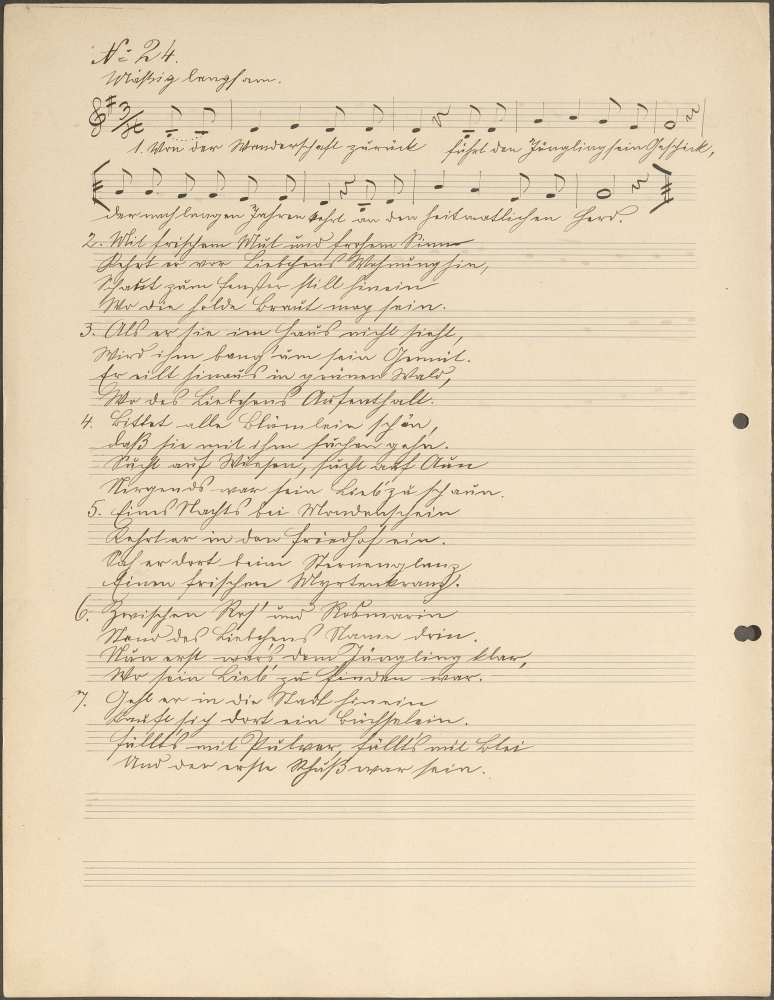 No 24.
Mäßig langsam.
3/4
1. Von der Wanderschaft zurück führt den Jüngling sein Geschick,
der nach langen Jahren kehrt an den heimatlichen Herd.
2. Mit frischem Mut und frohem Sinn
Kehrt er vor Liebchens Wohnung hin,
Schaut zum Fenster still hinein
Wo die holde Braut mag sein.
3. Als er sie im Haus nicht sieht,
Wird ihm bang um sein Gemüt.
Er eilt hinaus in grünen Wald,
Wo des Liebchens Aufenthalt.
4. Bittet alle Blümlein schön,
daß sie mit ihm suchen gehn.
Sucht auf Wiesen, sucht auf Aun
Nirgends war sein Lieb' zu schaun.
5. Eines Nachts bei Mondenschein
Kehrt er in den Friedhof ein.
Sah er dort beim Sternenglanz
Einen frischen Myrtenkranz.
6. Zwischen Ros' und Rosmarin
Stand des Liebchens Name drin.
Nun erst war's dem Jüngling klar,
Wo sein Lieb' zu finden war.
7. Geht er in die Stadt hinein
Kauft sich dort ein Büchselein.
Füllt's mit Pulver, füllt's mit Blei
Und der erste Schuß war sein.